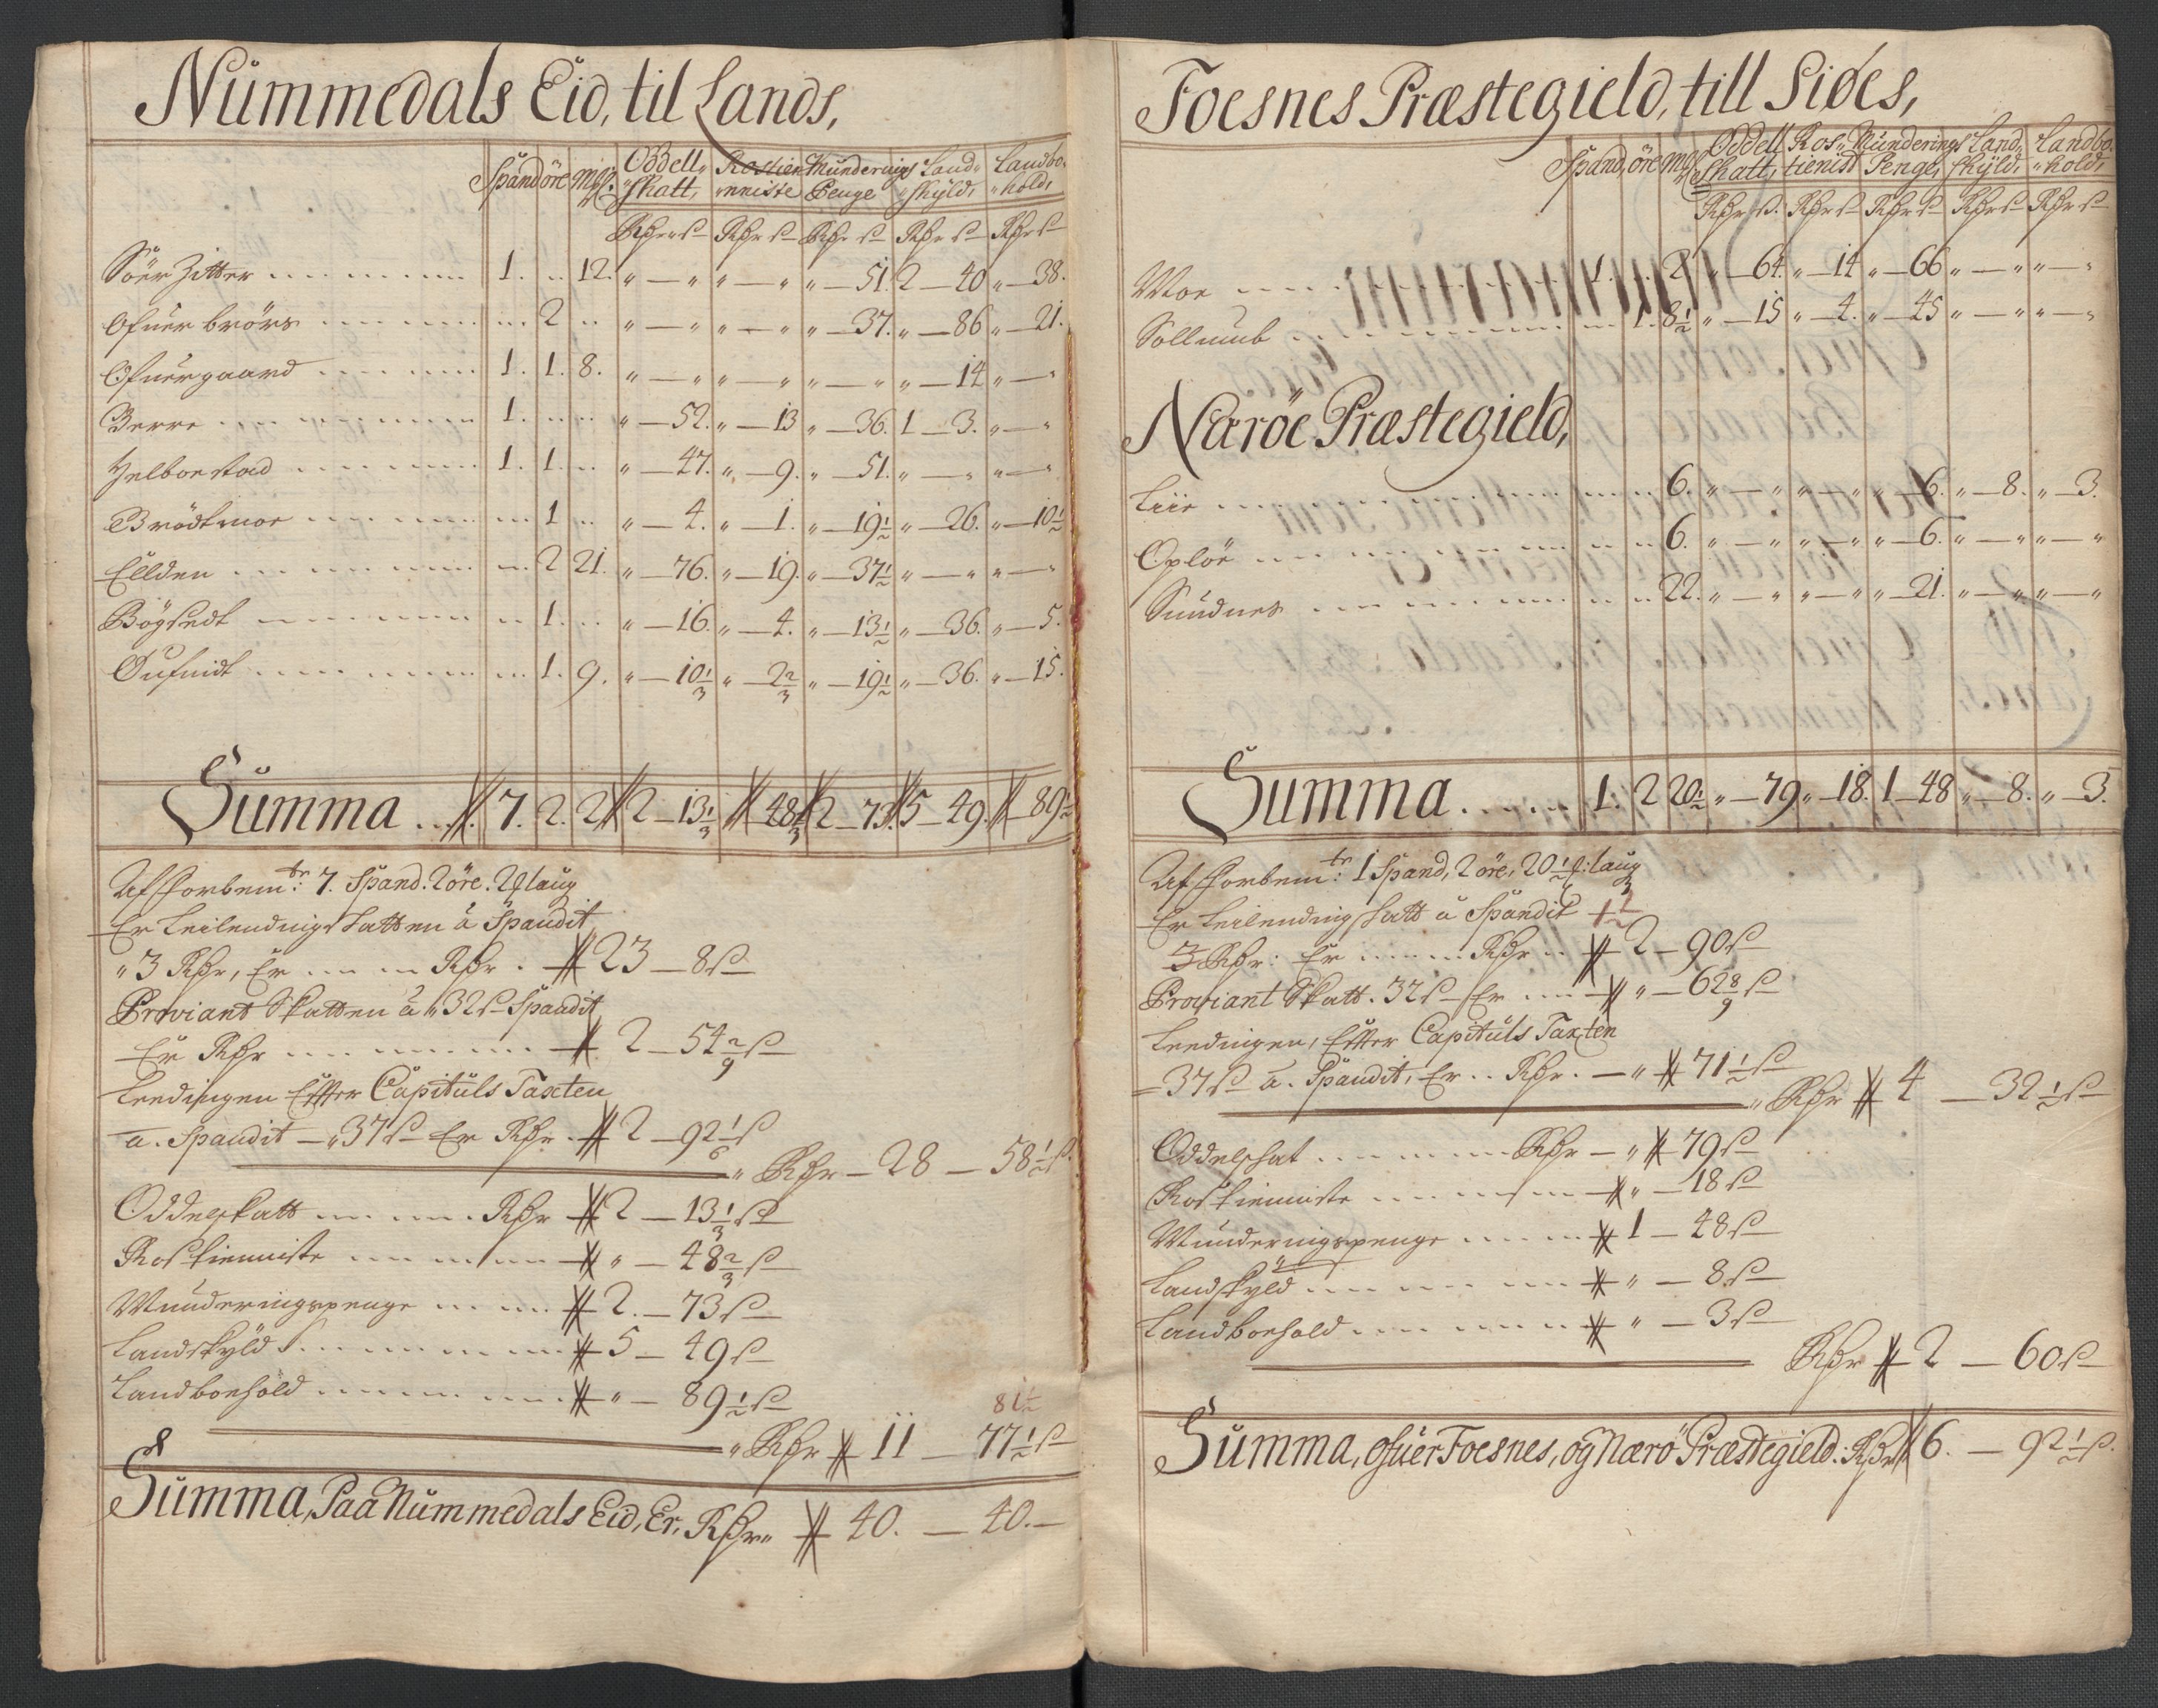 Nummedals Eid, til Lands,
Spand öre Mgl. Oddell„ Rostien Munderings Land„ Landbo„
„skatt, „nniste Penge „skÿld, „hold,
Rdr s Rdr s Rdr s Rdr s Rdr s
Söer Zitter 1. .. 12. „ — „ „ — „ „ — 51. 2 — 40 „ — 38.
Ofuer brörs ... 2 .. „ — „ „ — „ „ — 37. „ — 86 „ — 21.
Ofuergaard 1. 1. 8. „ — „ „ — „ „ — „ „ — 14 „ — „
Berre 1. .. .. „ — 52. „ — 13 „ — 36. 1 — 3. „ — „
Helbostad 1. 1. .. „ — 47. „ — 9. „ — 51. „ — „ „ — „
Brödtmoe ... 1 .. „ — 4. „ — 1. „ — 19½ „ — 26. „ — 10½
Ellden ... 2 21. „ — 76. „ — 19. „ — 37½ „ — „ „ — „
Bögsedt .. 1. .. „ — 16. „ — 4. „ — 13½ „ — 36. „ — 5.
Dufuidt ... 1. 9. „ — 10⅓ „ — 2⅔ „ — 19½ „ — 36. „ — 15.
Summa 7. 2. 2 2 — 13⅓ 48⅔ 2 — 73. 5 — 49. — 89½
Af forbem:te 7. Spand. 2 öre. 2 laug
Er Leilendings Skatten â Spandit
„ 3 Rdr, Er Rdr. 23 — 8 s
Proviant Skatten â „32 s Spandit
Er Rdr 2 — 54 2/9 s
Leedingen Effter Capituls Taxten
a. Spandit — „37 s Er Rdr. 2 — 92 1/6 s
„ Rdr — 28 — 58½ s
Oddelskatt Rdr 2 — 13⅓ s
Rostienniste „ — 48⅔ s
Munderingspenge 2. — 73 s
Landskÿld 5 — 49 s
Landboehold „ — 89½ s
81½
„ Rdr 11 — 77½ s
Summa, Paa Nummedals Eid, Er, Rdr. 40. — 40. —
Foesnes Præstegield, till Siöes,
Spand, öre Mgl Oddell Ros„ Munderings Land„ Landbo„
Skatt, tienist Penge, skÿld, „hold,
Rdr s. Rdr s Rdr s Rdr s Rdr s
Moe 1. . 2 „ — 64. „ — 14 „ — 66 „ — „ „ — „
Sollumb 1. 8½ „ — 15 „ — 4. „ — 45 „ — „ „ — „
Næröe Præstegield,
Liie .. 6. „ — „ „ — „ „ — 6. „ — 8. „ — 3.
Oplöe .. 6. „ — „ „ — „ „ — 6. „ — „ „ — „
Sundnes .. 22. „ — „ „ — „ „ — 21. „ — „ „ — „
Summa 1. 2 20½ „ — 79 „ — 18. 1 — 48 „ — 8. „ — 3.
Af forbem:te 1 Spand, 2 öre, 20½ laug
Er Leilending skatt â Spandit 1½
3 Rdr: Er Rdr 2 — 90 s
Proviant Skatt. 32 s Er „ — 62 8/9 s
Leedingen, Effter Capituls Taxten
= 37 s â. Spandit, Er .. Rdr. — „ 71½ s
„ Rdr 4 — 32½ s
Oddelskat Rdr — „ 79 s
Rostienniste „ — 18 s
Munderingspenge 1 — 48 s
Landskÿld „ — 8 s
Landboehold „ — 3 s
Rdr 2 — 60 s
Summa, ofuer Foesnes, og Nærö Præstegield: Rdr 6. — 92½ s.